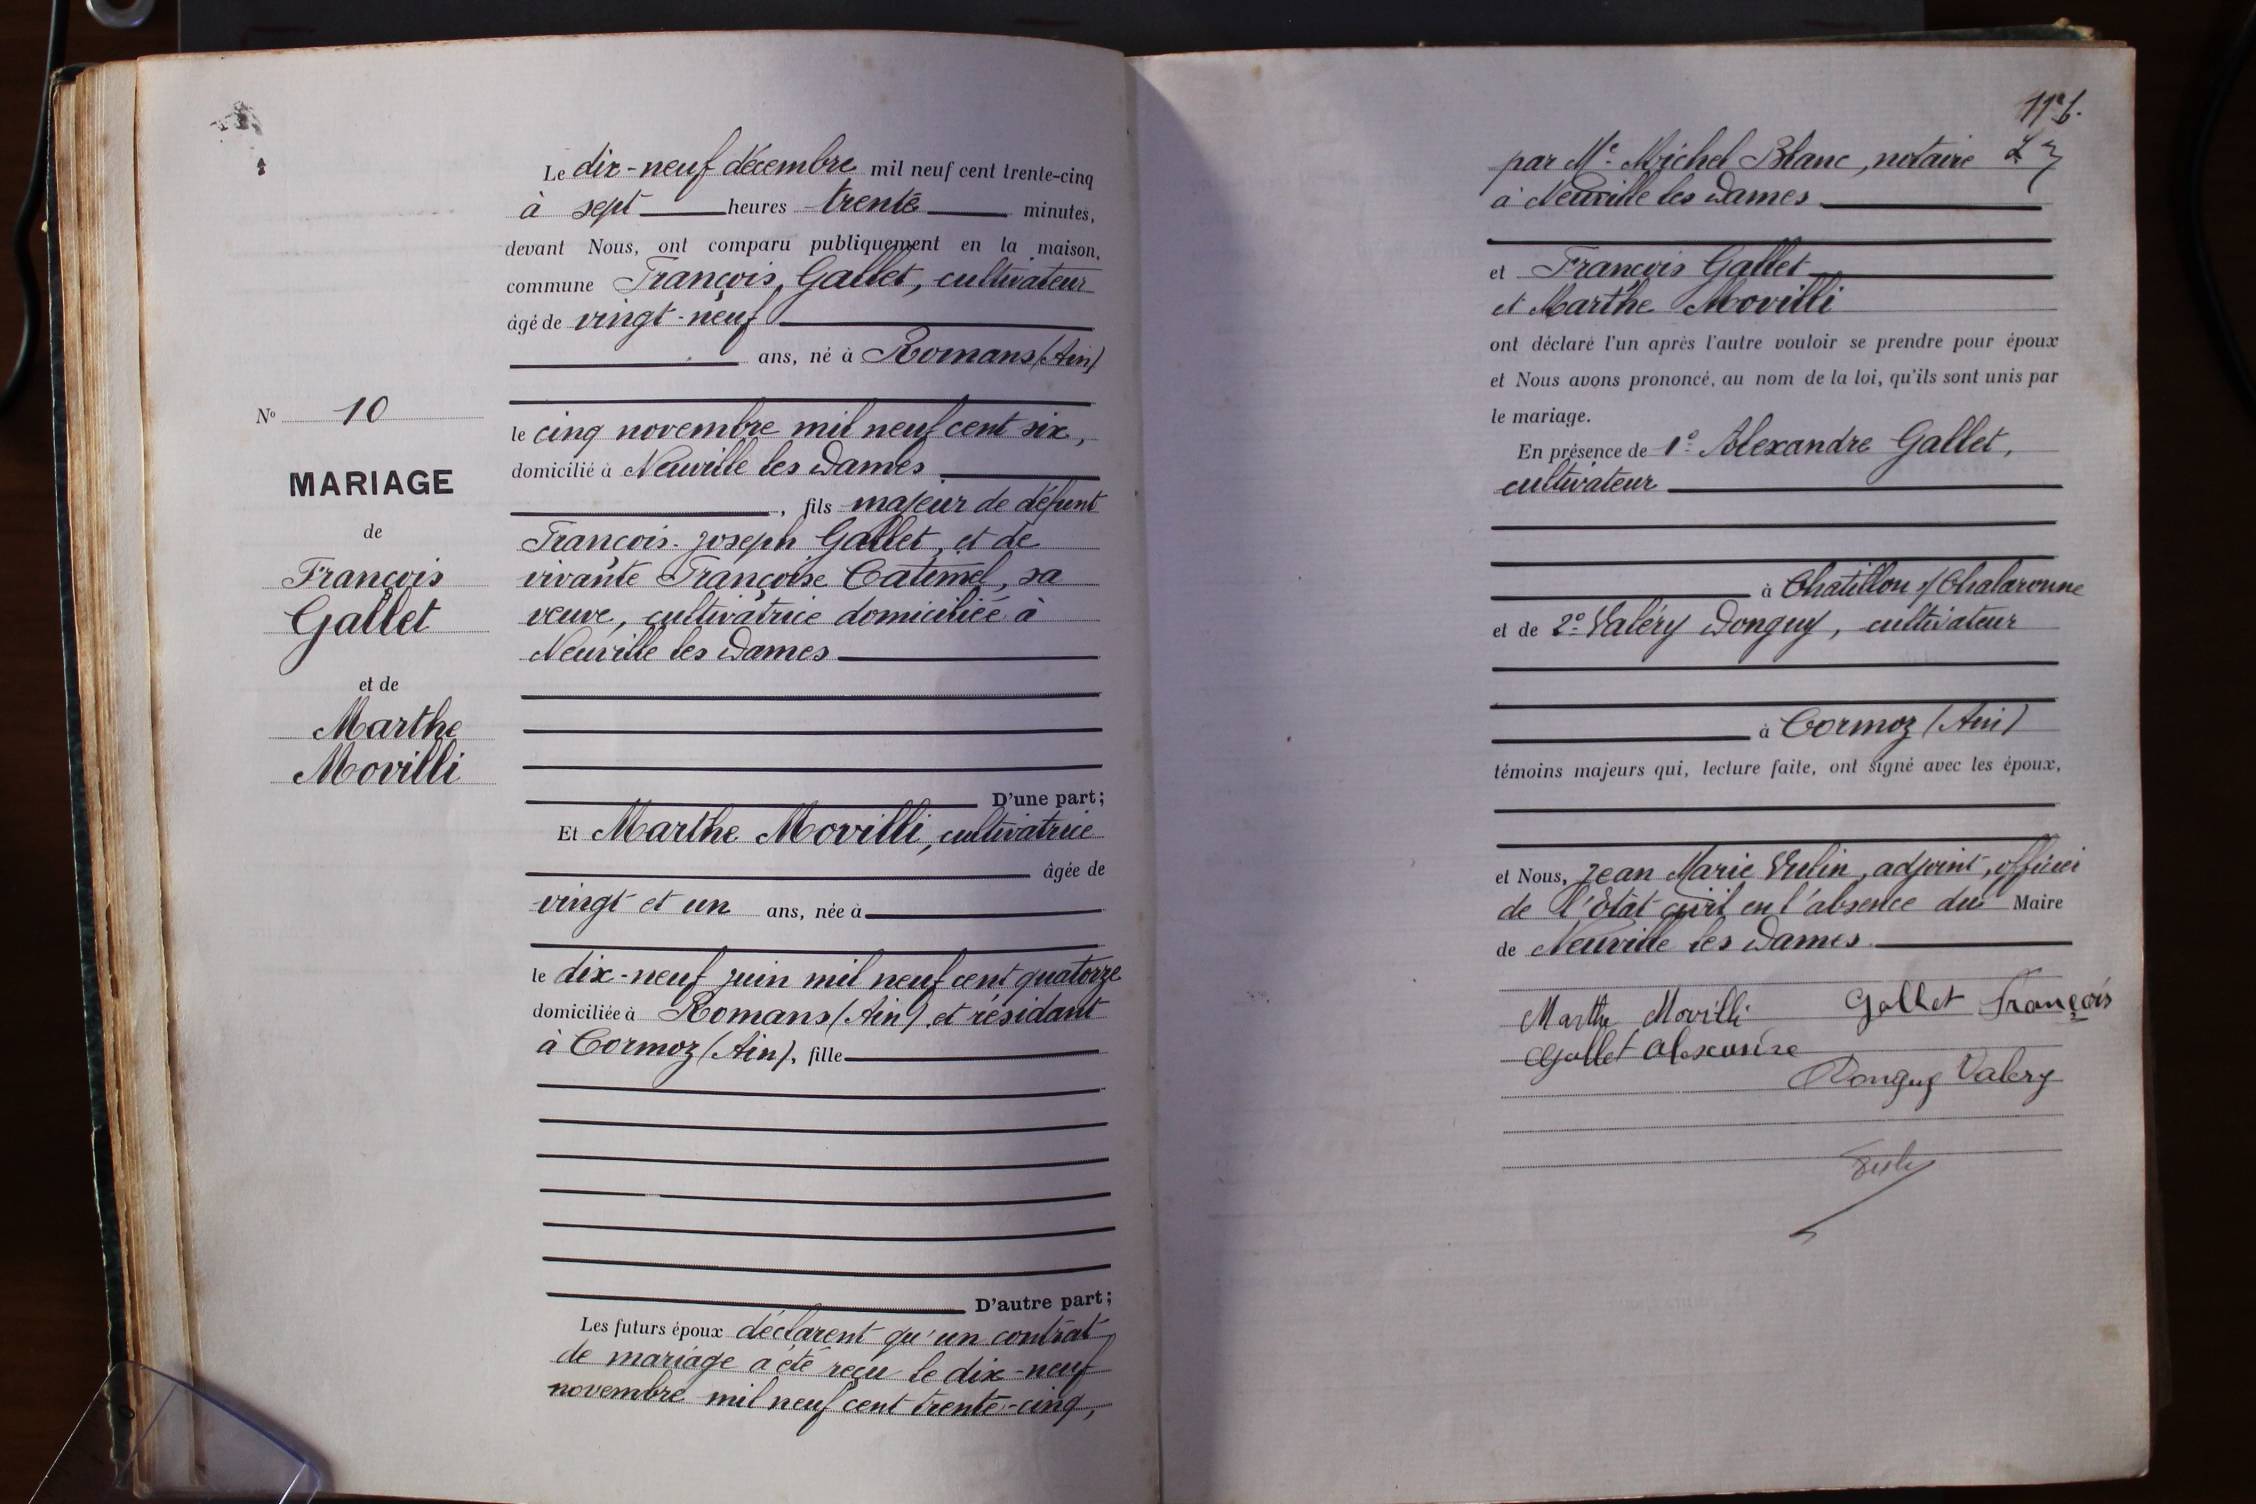 Le dix-neuf décembre mil neuf cent trente-cinq
à sept heures trente minutes,
devant Nous, ont comparu publiquement en la maison,
commune François Gallet, cultivateur
âgé de vingt-neuf
ans, né à Romans (Ain)
le cinq novembre mil neuf cent six,
domicilié à Neuville les Dames
, fils majeur de défunt
François-Joseph Gallet, et de
vivante Françoise Catimel, sa
veuve, cultivatrice domiciliée à
Neuville les Dames
D'une part;
Et Marthe Movilli, cultivatrice
âgée de
vingt et un ans, née à
le dix-neuf juin mil neuf cent quatorze
domiciliée à Romans (Ain) et résidant
à Cormoz (Ain), fille
D'autre part;
Les futurs époux déclarent qu'un contrat
de mariage a été reçu le dix-neuf
novembre mil neuf cent trente-cinq,
No 10
MARIAGE
de
François
Gallet
et de
Marthe
Movilli
par Me Michel Blanc, notaire
à Neuville les Dames
et François Gallet
et Marthe Movilli
ont déclaré l'un après l'autre vouloir se prendre pour époux
et Nous avons prononcé, au nom de la loi, qu'ils sont unis par
le mariage.
En présence de 1o Alexandre Gallet,
cultivateur
à Chatillon s/Chalaronne
et de 2o Valéry Donguy, cultivateur
à Cormoz (Ain)
témoins majeurs qui, lecture faite, ont signé avec les époux,
et Nous, Jean Marie Vulin, adjoint, officier
de l'état civil en l'absence du Maire
de Neuville les Dames
Marthe Movilli Gallet François
Gallet Alexandre
Donguy Valery